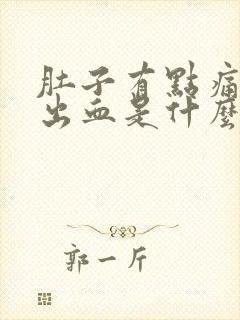 肚子有點痛
出血是什麼
郭一斤